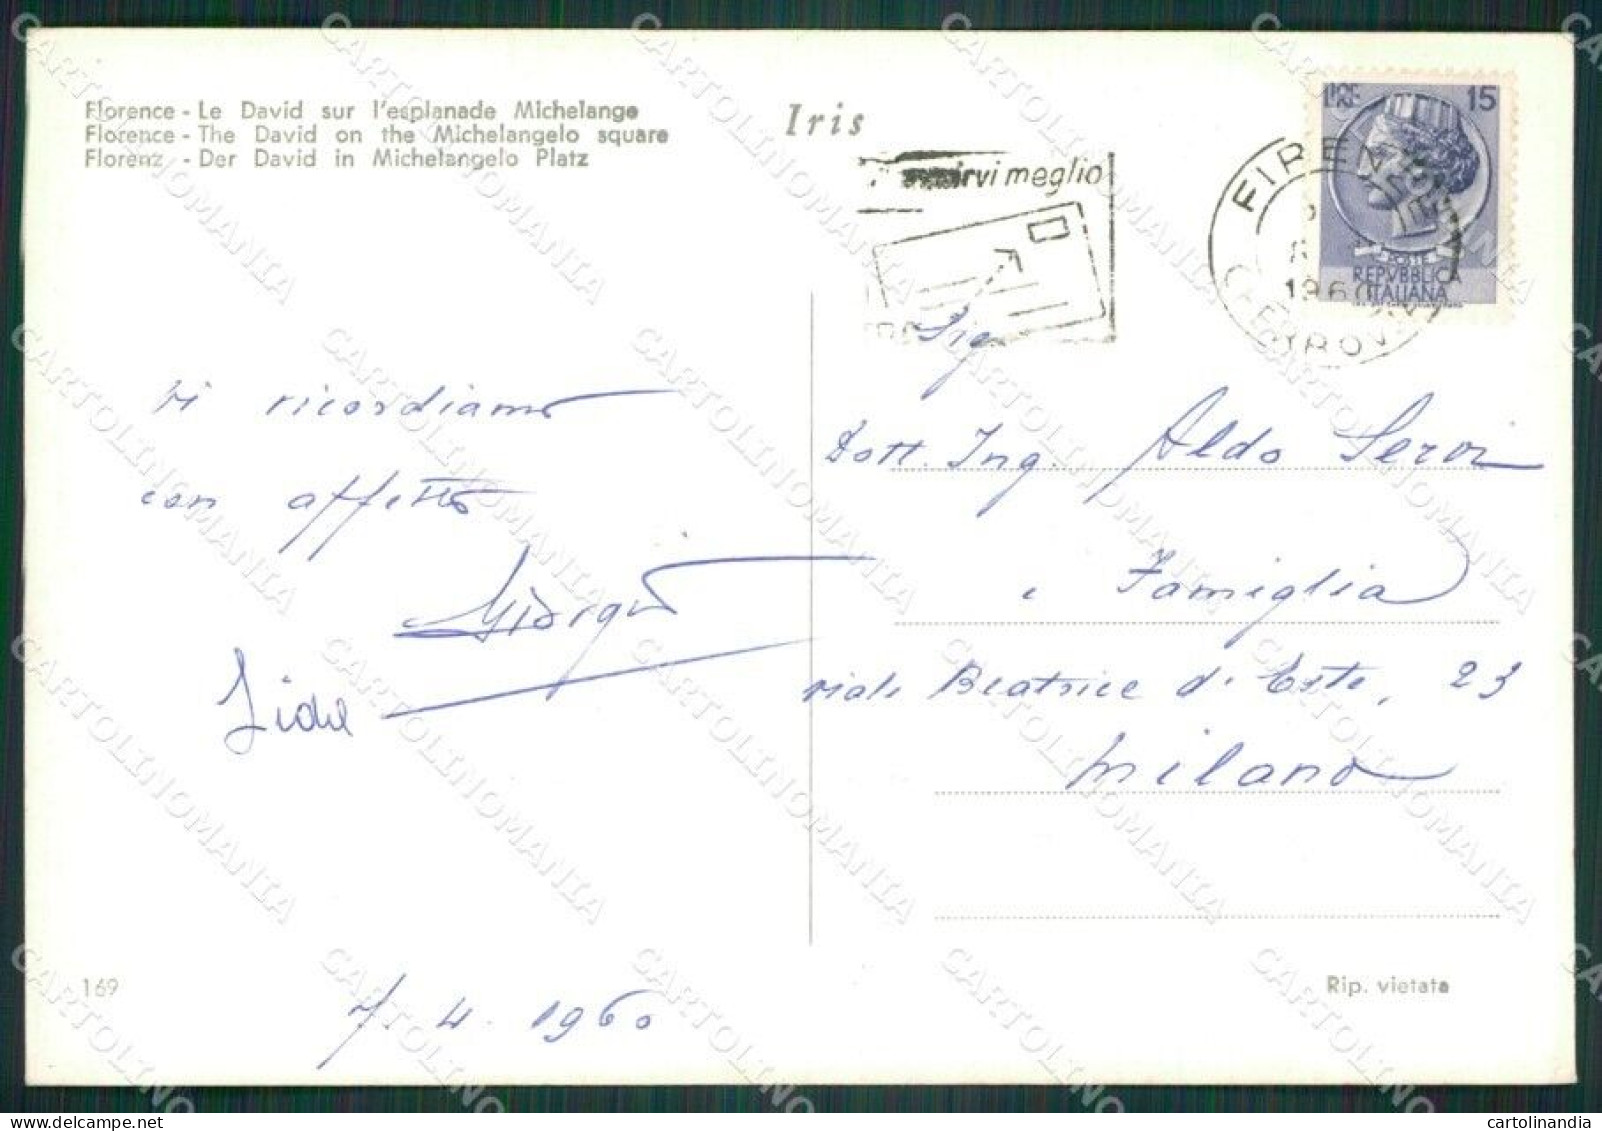 Florence - Le David sur l'esplanade Michelange
Florence - The David on the Michelangelo square
Florenz - Der David in Michelangelo Platz
Iris
irvi meglio
LIRE 15
POSTE
REPVBBLICA
ITALIANA
FIRENZE
FERROVIA
1960
Vi ricordiamo
con affetto
Giorgio
Sig
Dott. Ing. Aldo Servi
e Famiglia
viale Beatrice d'Este, 23
Milano
7. 4. 1960
169
Rip. vietata
CARTOLINOMANIA
cartolinandia